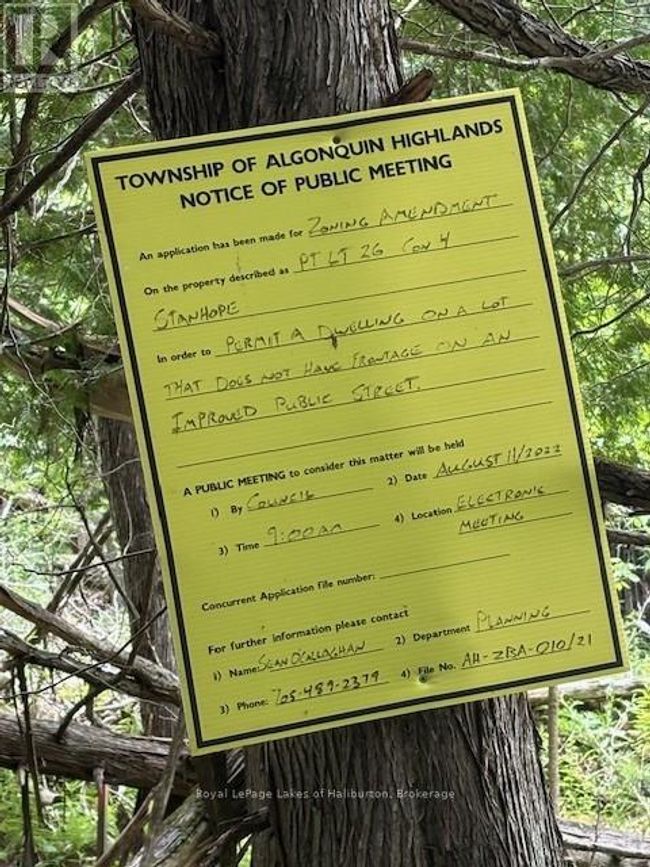 TOWNSHIP OF ALGONQUIN HIGHLANDS
NOTICE OF PUBLIC MEETING
An application has been made for ZONING AMENDMENT
On the property described as PT LT 26 CON 4
STANHOPE
In order to PERMIT A DWELLING ON A LOT
THAT DOES NOT HAVE FRONTAGE ON AN
IMPROVED PUBLIC STREET.
A PUBLIC MEETING to consider this matter will be held
1) By COUNCIL 2) Date AUGUST 11/2022
3) Time 9:00AM 4) Location ELECTRONIC
MEETING
Concurrent Application file number:
For further information please contact
1) Name: SEAN O'CALLAGHAN 2) Department PLANNING
3) Phone: 705-489-2379 4) File No. AH-ZBA-010/21
Royal LePage Lakes of Haliburton, Brokerage